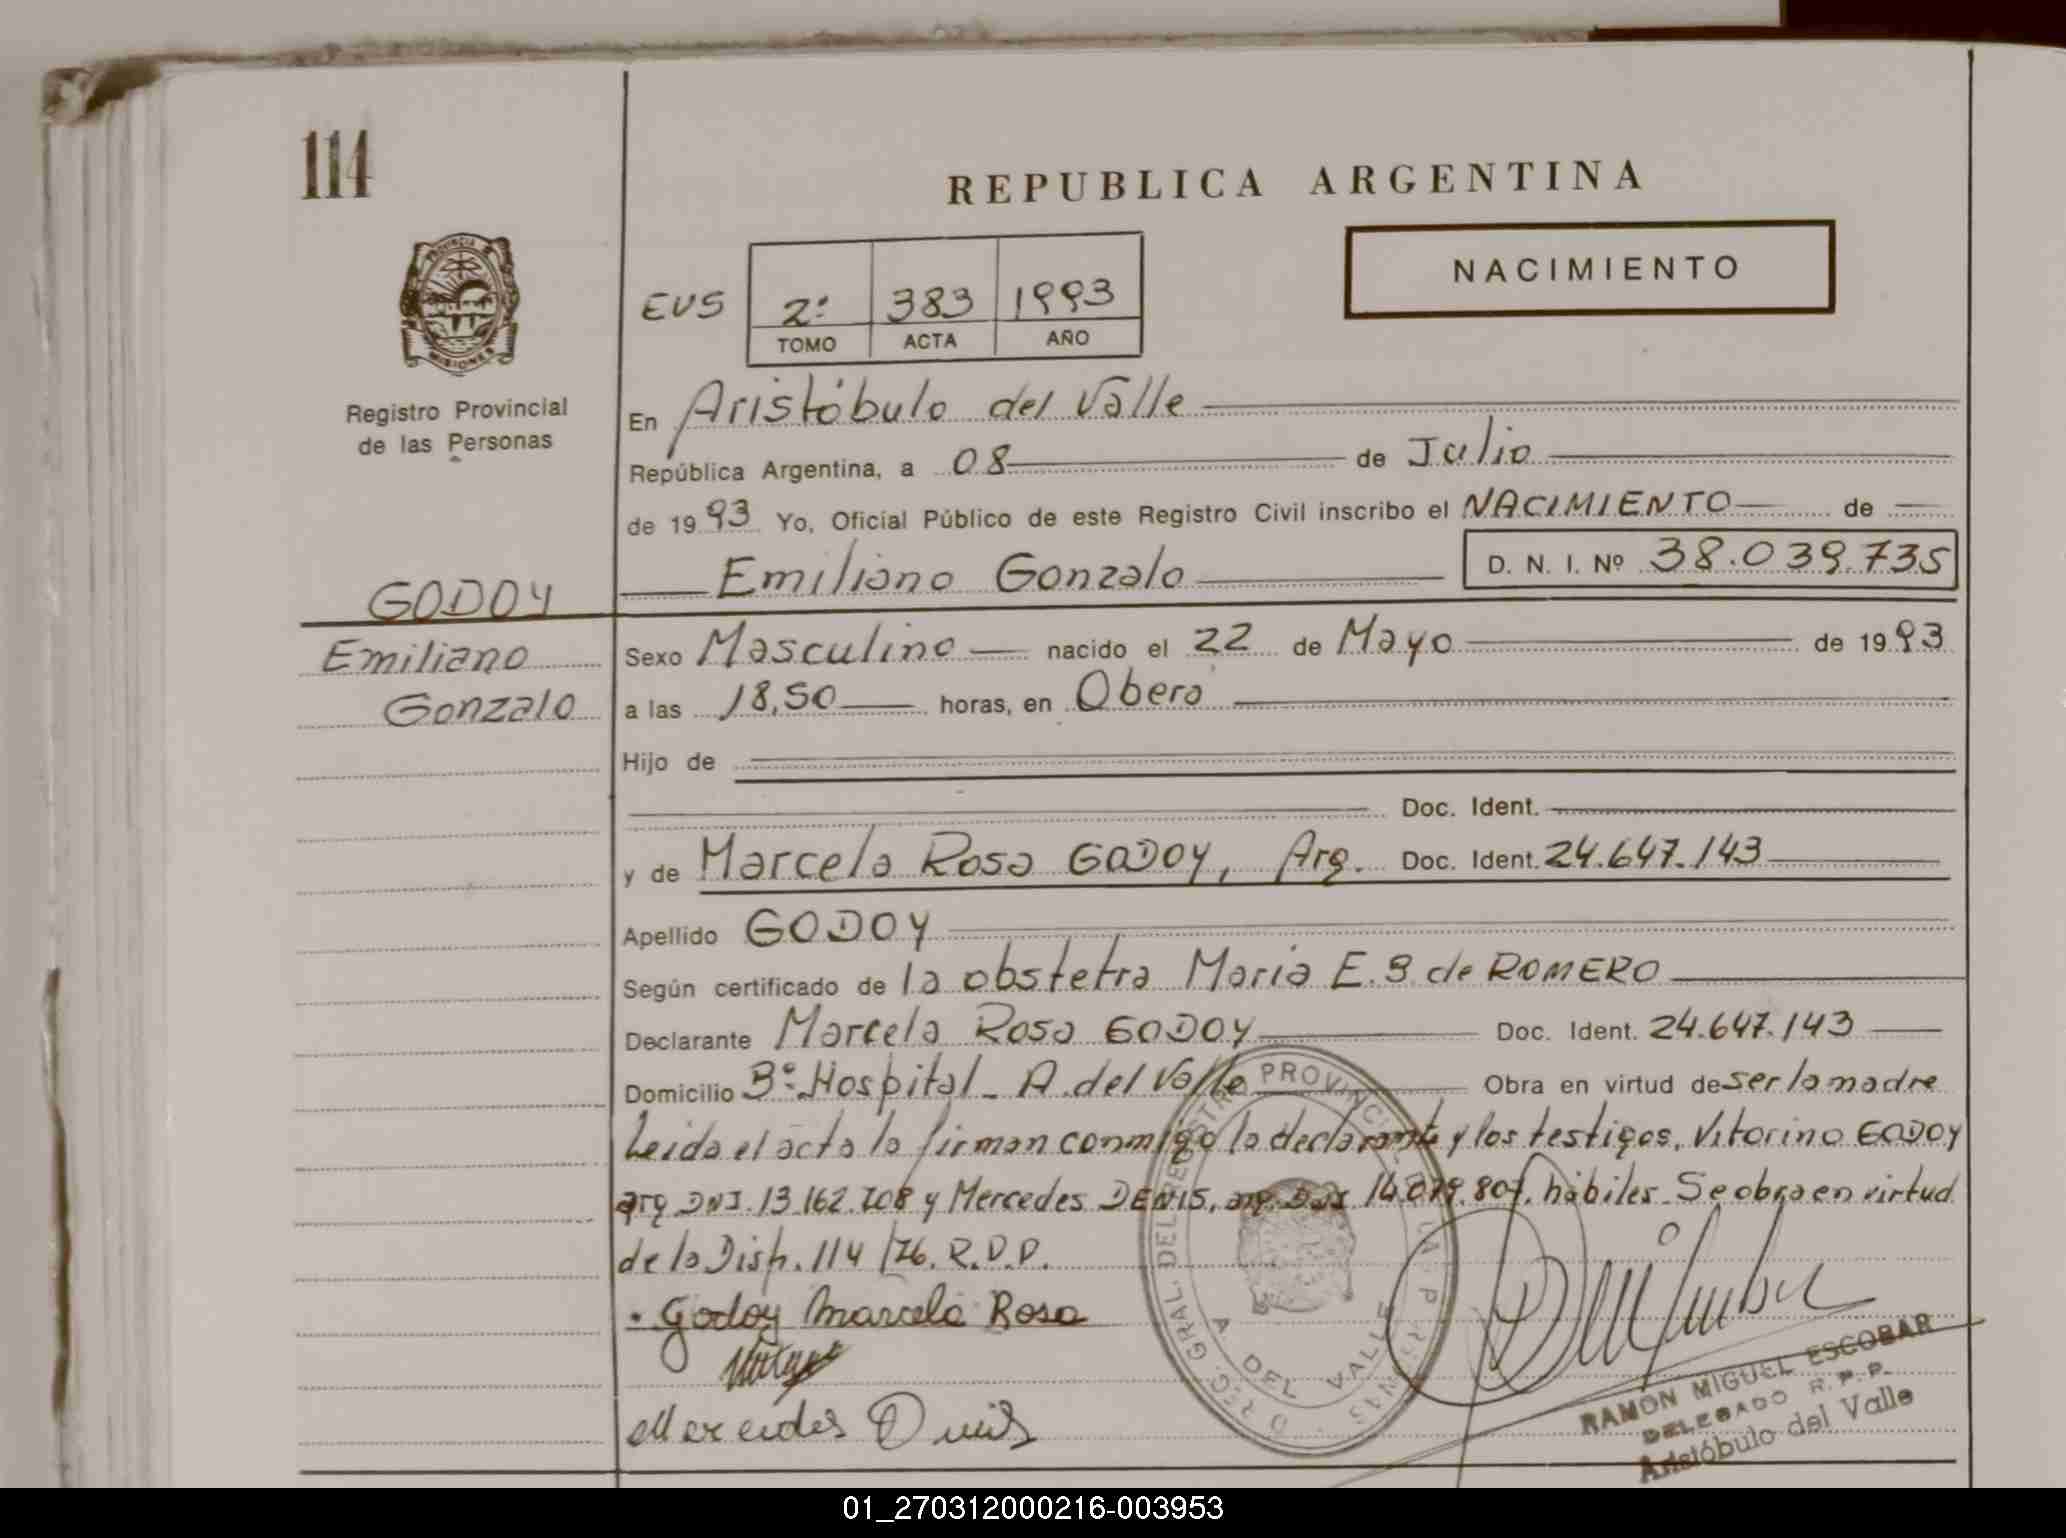 114
REPUBLICA ARGENTINA
NACIMIENTO
PROVINCIA DE
MISIONES
Registro Provincial
de las Personas
EVS 2º 383 1993
TOMO ACTA AÑO
En Aristóbulo del Valle
República Argentina, a 08 de Julio
de 1993 Yo, Oficial Público de este Registro Civil inscribo el NACIMIENTO de
Emiliano Gonzalo D. N. I. Nº 38.039.735
GODOY
Emiliano
Gonzalo
Sexo Masculino nacido el 22 de Mayo de 1993
a las 18,50 horas, en Obera
Hijo de
Doc. Ident.
y de Marcela Rosa GODOY, Arg. Doc. Ident. 24.647.143
Apellido GODOY
Según certificado de la obstetra Maria E. S. de ROMERO
Declarante Marcela Rosa GODOY Doc. Ident. 24.647.143
Domicilio Bº Hospital - A. del Valle Obra en virtud de ser la madre
Leida el acta la firman conmigo la declarante y los testigos, Vitorino GODOY
arg. DNI. 13.162.208 y Mercedes DENIS, arg. DNI 14.079.807, hábiles. Se obra en virtud
de la Disp. 114/76. R.P.P.
Godoy Marcela Rosa
Mercedes Denis
A. DEL VALLE
RAMON MIGUEL ESCOBAR
DELEGADO R. P. P.
Aristóbulo del Valle
01_270312000216-003953